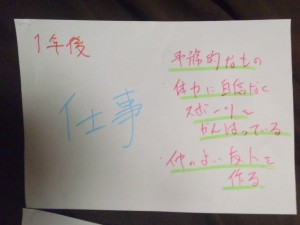 1年後
仕事
事務的なもの
体力に自信なく
スポーツを
がんばっている
仲のよい友人を
作る